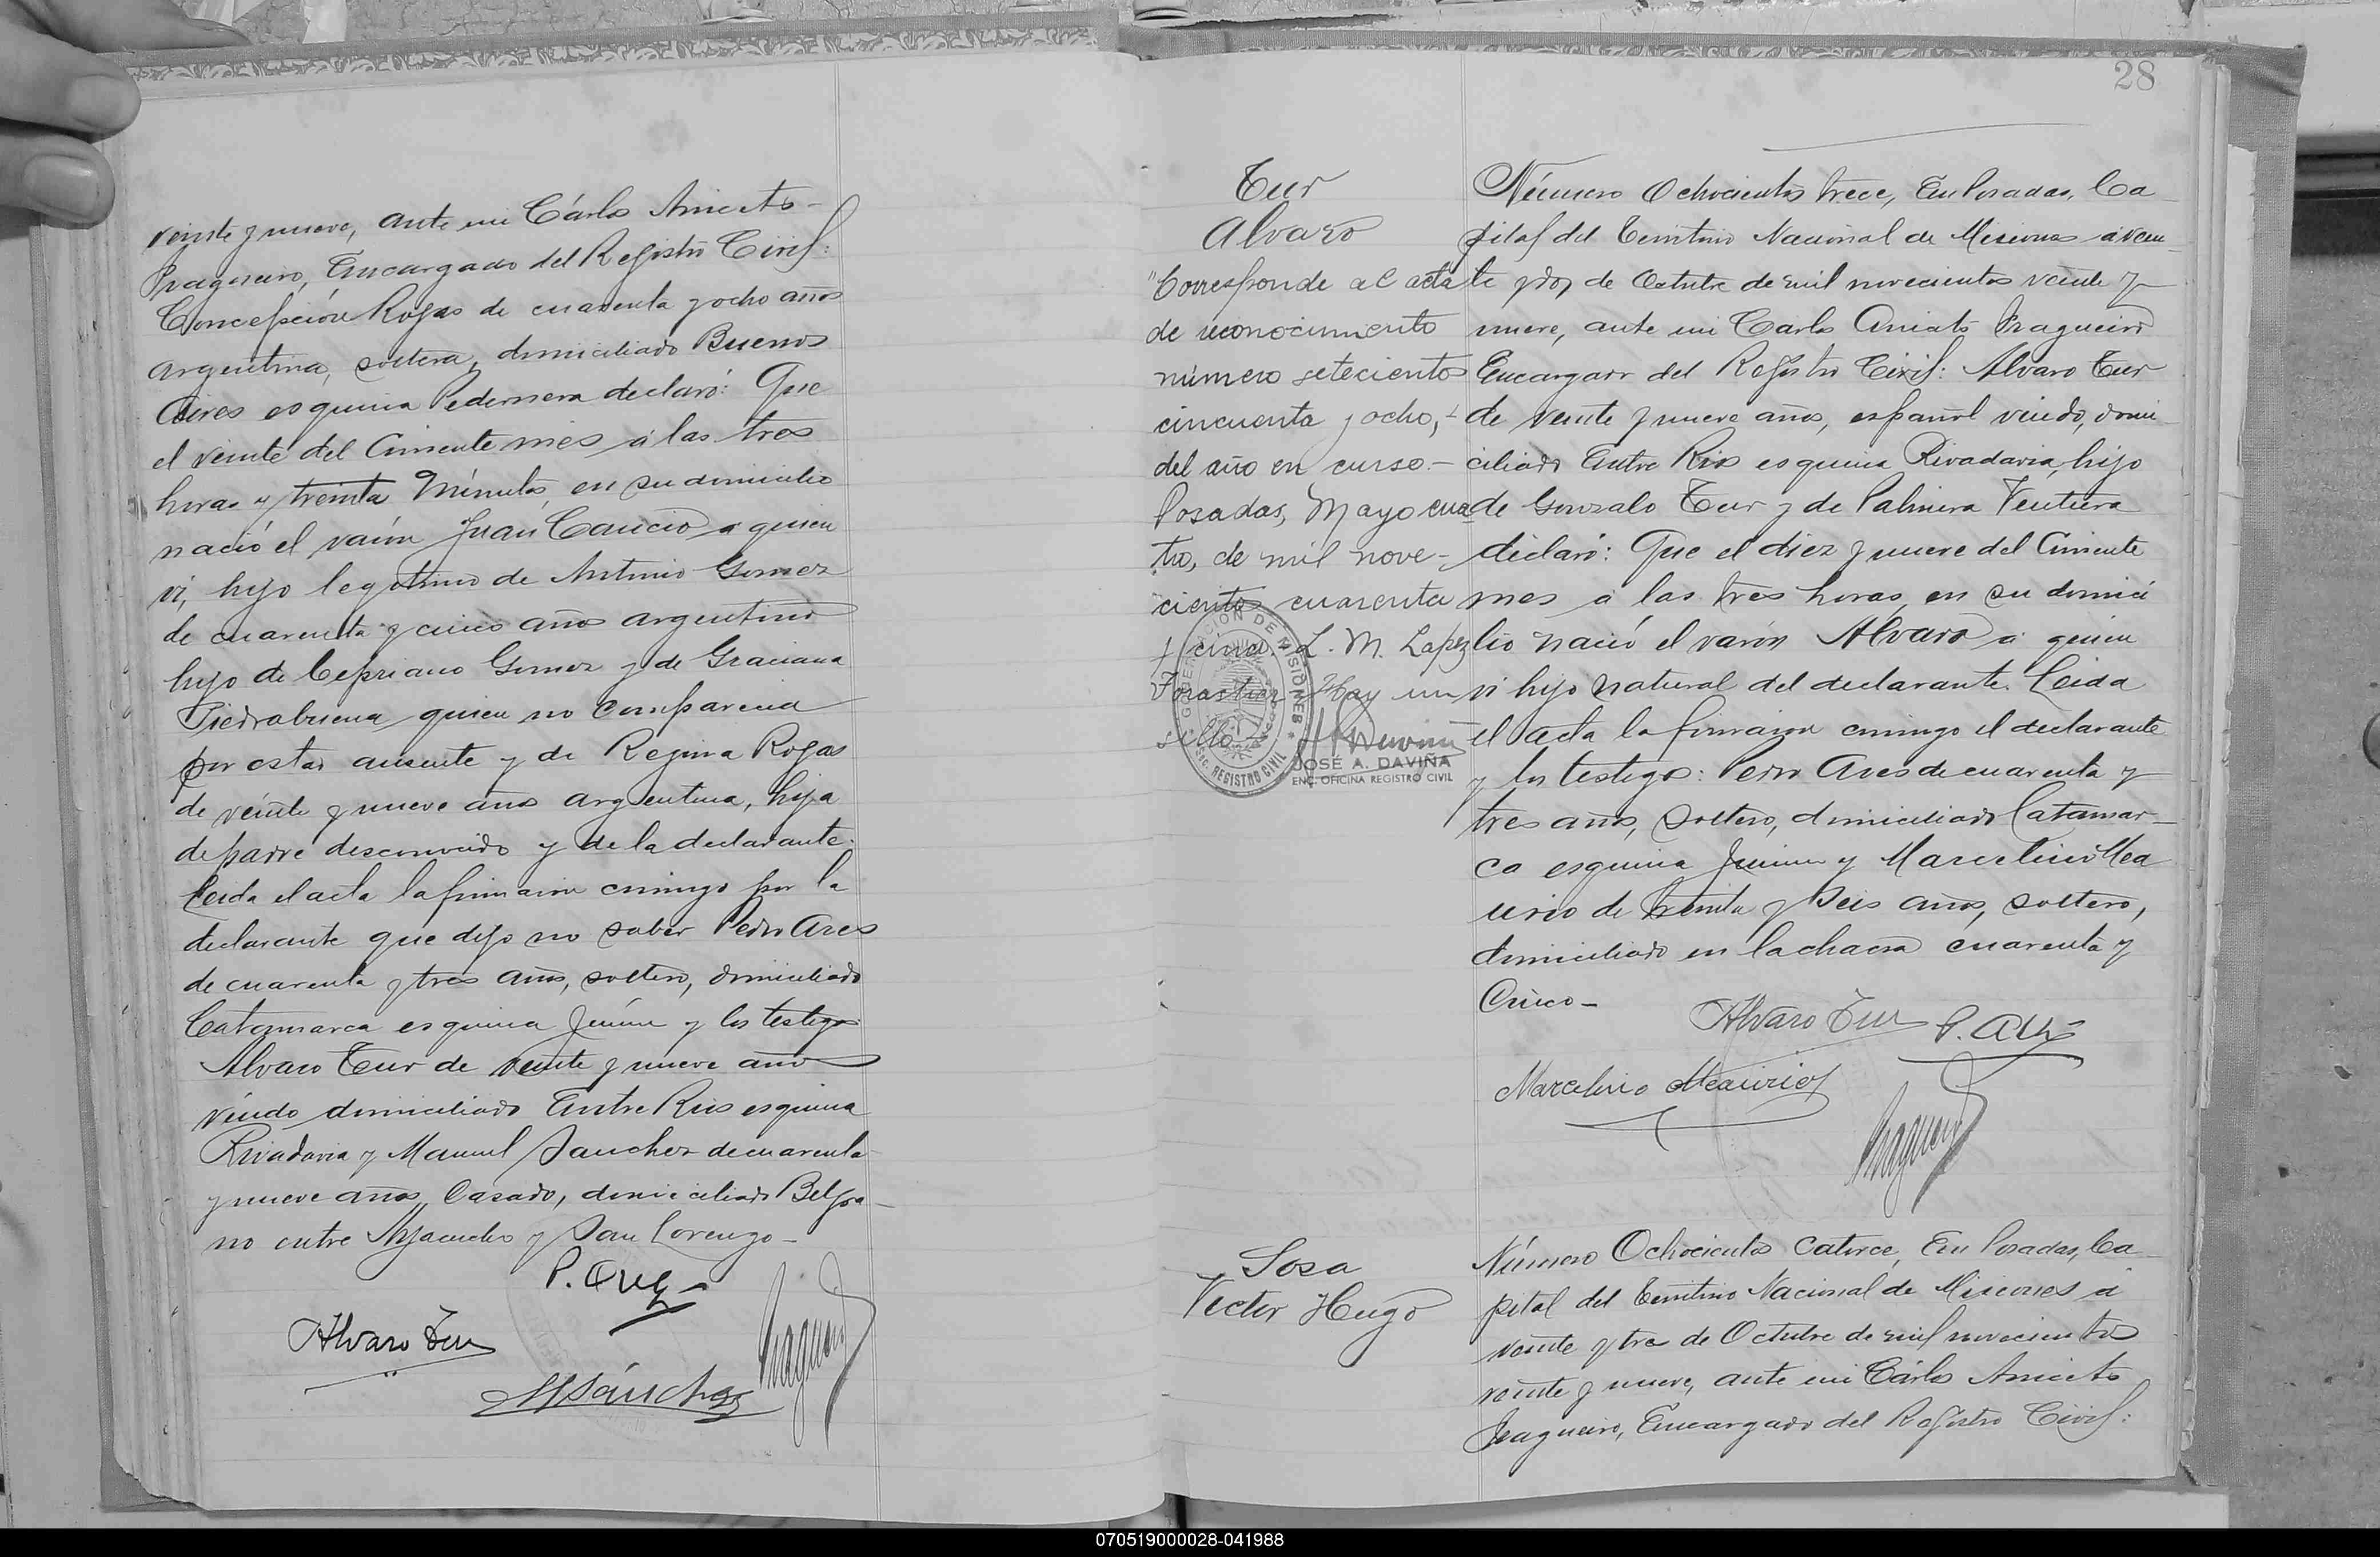 veinte y nueve, ante mi Cárlos Aniceto
Fragueiro, Encargado del Registro Civil:
Concepción Rojas de cuarenta y ocho años
argentina, soltera, domiciliado Buenos
Aires esquina Pedernera declaró: Que
el veinte del Corriente mes á las tres
horas y treinta Minutos, en su domicilio
nació el varón Juan Caucio á quien
ví, hijo legitimo de Antonio Gomez
de cuarenta y cinco años argentino
hijo de Cipriano Gomez y de Graciana
Piedrabuena quien no comparecia
por estar ausente y de Regina Rojas
de veinte y nueve años argentina, hija
de padre desconocido y de la declarante.
Leida el acta la firmaron conmigo por la
declarante que dijo no saber Pedro Ares
de cuarenta y tres años, soltero, domiciliado
Catamarca esquina Junin y los testigos
Alvaro Tur de veinte y nueve años
viudo domiciliado Entre Rios esquina
Rivadavia y Manuel Sanchez de cuarenta
y nueve años, Casado, domiciliado Belgra-
no entre Ayacucho y San Lorenzo-
Alvaro Tur
MSánchez
28
Tur
Alvaro
"Corresponde al acta
de reconocimiento
número setecientos
cincuenta y ocho,-
del año en curso.-
Posadas, Mayo cua-
tro, de mil nove-
cientos cuarenta
y cinco. L. M. Lopez
Forastier Hay un
sello
GOBERNACIÓN DE MISIONES
REGISTRO CIVIL
JOSÉ A. DAVIÑA
ENC. OFICINA REGISTRO CIVIL
Número Ochocientos trece, En Posadas, Ca
pital del Territorio Nacional de Misiones á vein-
te y dos de Octubre de mil novecientos veinte y
nueve, ante mi Carlos Aniceto Fragueiro
Encargado del Registro Civil: Alvaro Tur
de veinte y nueve años, español viudo, domi-
ciliado Entre Rios esquina Rivadavia, hijo
de Gonzalo Tur y de Palmira
declaró: Que el diez y nueve del Corriente
mes á las tres horas, en su domici
lio nació el varón Alvaro á quien
ví hijo natural del declarante. Leida
el acta la firmaron conmigo el declarante
y los testigos: Pedro Ares de cuarenta y
tres años, soltero, domiciliado Catamar-
ca esquina Junin y Marcelino Mea
urio de treinta y seis años, soltero,
domiciliado en la chacra cuarenta y
Cinco-
Alvaro Tur
Marcelino Meaurio
Sosa
Victor Hugo
Número Ochocientos Catorce, En Posadas, Ca
pital del Territorio Nacional de Misiones á
veinte y tres de Octubre de mil novecientos
veinte y nueve, ante mi Cárlos Aniceto
Fragueiro, Encargado del Registro Civil:
070519000028-041988